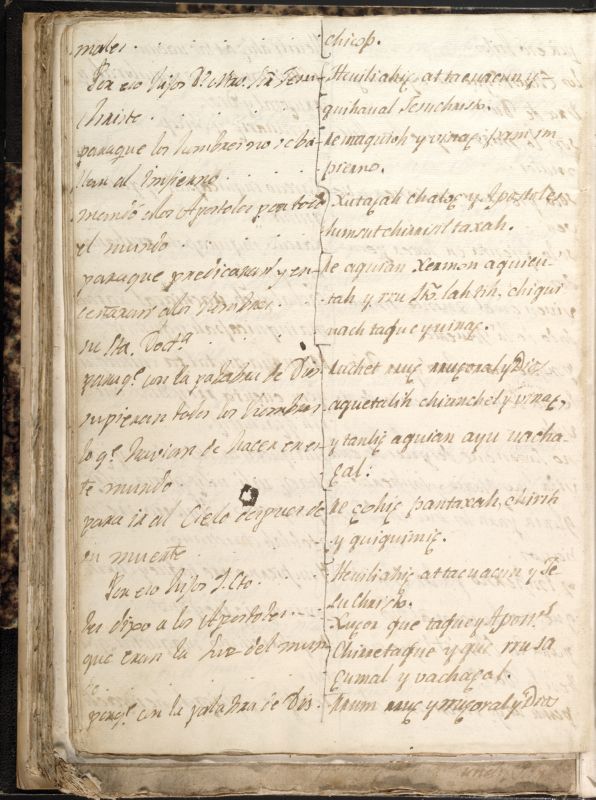 males.
Por eso hijos
Christo.
paraque los hombres no se ba-
llan al Infierno
mandó a los Apostoles por todo
el mundo
paraque predicaran y en-
señaran a los hombres
su Sta. Doct.a
paraq.e con la palabra de Dios
supieran todos los hombres
lo q.e havian de hacer en es-
te mundo
para ir al Cielo despues de
su muerte.
Por eso hijos
les dixo a los Apostoles.
que eran la luz del mun-
do
porq.e con la palabra de Dios.
chicop.
Heuiliahiç attacuacun y
quihaual Jesuchristo.
re maquioh y vinaç
pierno.
Xutaçah chalaç y Apostoles
taxah.
re aquian Xermon aquieu-
tah y rru lahrih, chiqui
nach taque y vinaç.
ruchet nuç nuçoral y Dios
aquetalih chianchel y vinaç,
y tanliç aquian ayu uacha-
çal:
re çohiç pantaxah, chirih
y quiquimiç.
Heuiliahiç attacuacun y Je
suChristo.
Xuçon que taque y Apost.s
Chiretaque y que rrusa
çumal y vachaçal.
rrum nuç y nuçoral y Dios